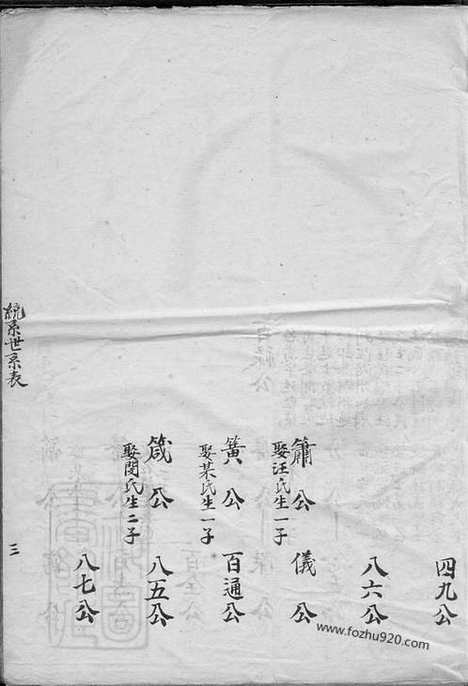 四九公
八六公
簫公
儀公
娶汪氏生一子
簧公
百通公
娶某氏生一子
箴公
八五公
娶閔氏生二子
八七公
統系世系表
三
www.fozhu920.com